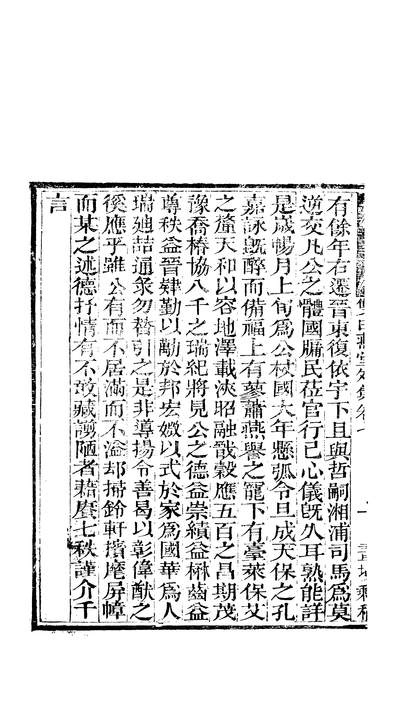 有餘年右遷晉東復依宇下且與哲嗣湘浦司馬為莫
逆交凡公之體國牖民莅官行己心儀既久耳熟能詳
是歲暢月上旬為公杖國大年懸弧令旦成天保之孔
嘉詠既醉而備福上有蓼蕭燕譽之寵下有臺萊保艾
之釐天和以容地澤載浹昭融戩穀應五百之昌期茂
豫喬椿協八千之瑞紀將見公之德益崇績益楙齒益
尊秩益晉肄勤以勱於邦宏燬以式於家為國華為人
瑞廸喆通彖勿替引之是非導揚令善曷以彰偉猷之
後應乎雖公有而不居滿而不溢却揚鈴軒擯麾屏幛
而某之述德抒情有不敢藏謭陋者藉賡七秩謹介千
言